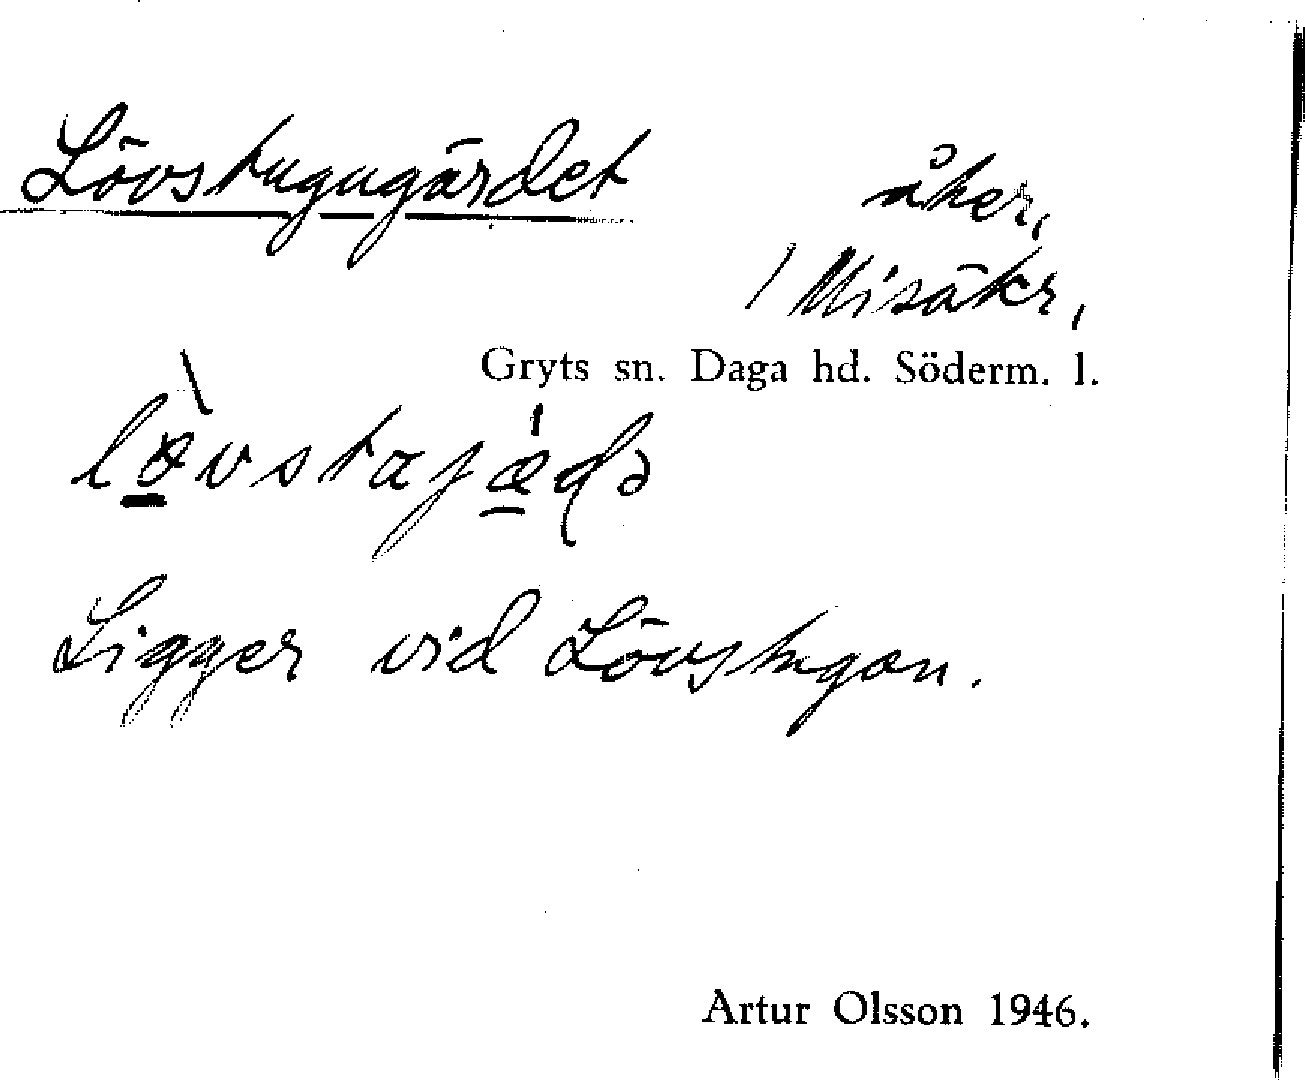 Lövstugugärdet
åker,
/ Misäkr,
Gryts sn. Daga hd. Söderm. l.
Ligger vid Lövstugan.
Artur Olsson 1946.